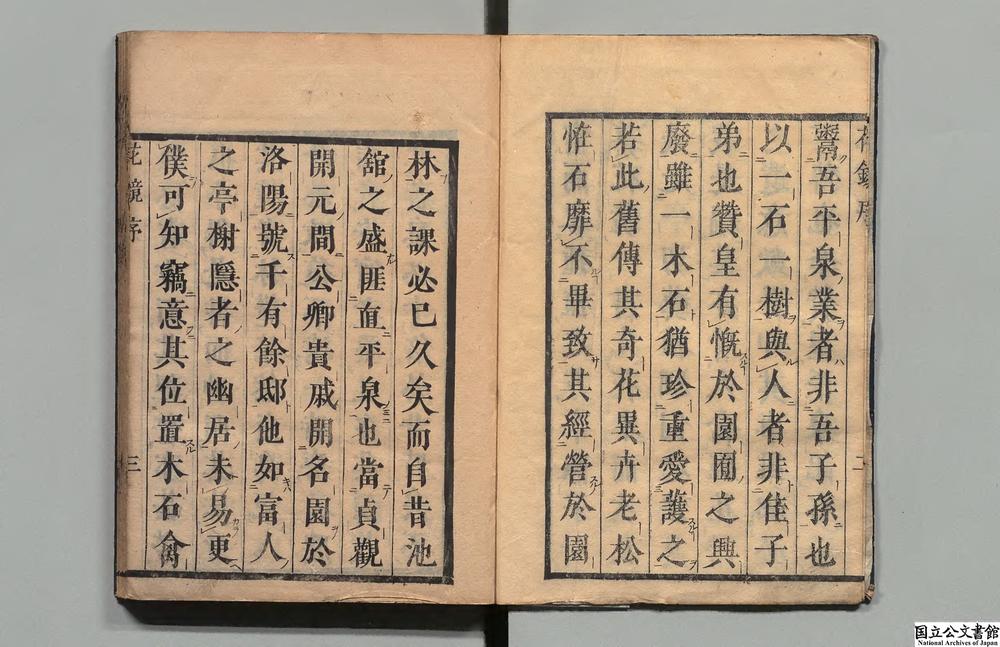 鬻吾平泉業者非吾子孫也
以一石一樹與人者非佳子
弟也贊皇有慨於園囿之興
廢雖一木石猶珍重愛護之
若此舊傳其奇花異卉老松
恠石靡不畢致其經營於園
林之課必已久矣而自昔池
舘之盛匪直平泉也當貞觀
開元間公卿貴戚開名園於
洛陽號千有餘邸他如富人
之亭榭隱者之幽居未易更
僕可知竊意其位置木石禽
花鏡序
三
国立公文書館
National Archives of Japan